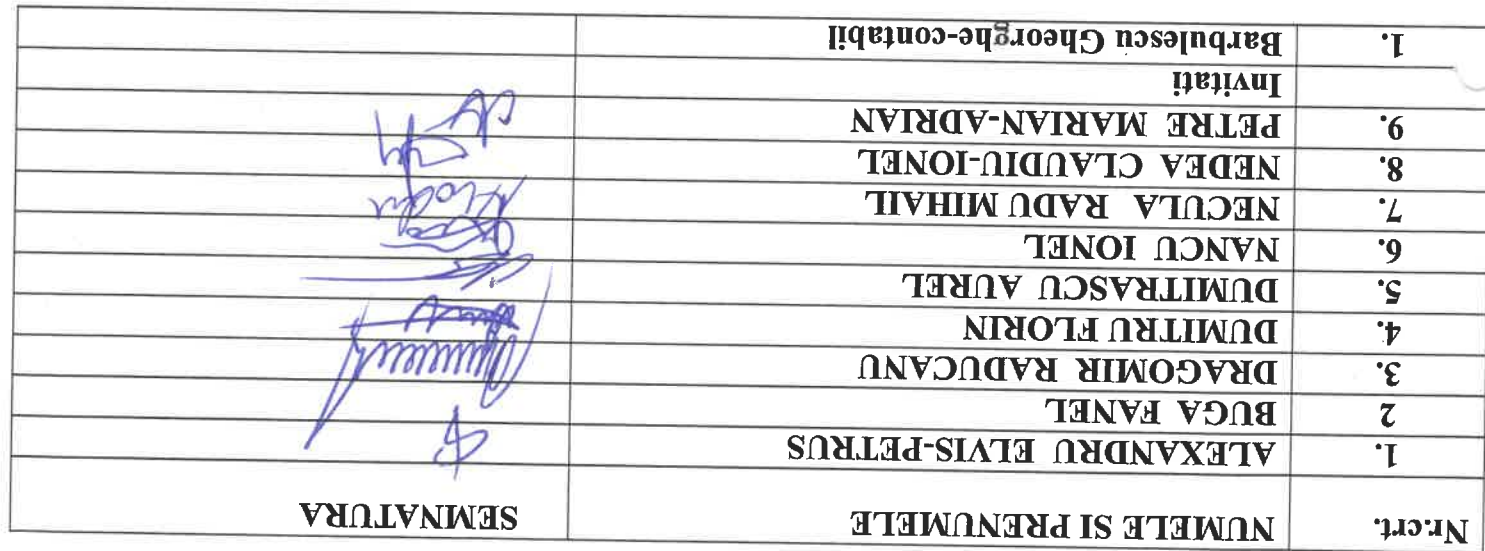 Nr.crt. NUMELE SI PRENUMELE SEMNATURA
1. ALEXANDRU ELVIS-PETRUS
2 BUGA FANEL
3. DRAGOMIR RADUCANU
4. DUMITRU FLORIN
5. DUMITRASCU AUREL
6. NANCU IONEL
7. NECULA RADU MIHAIL
8. NEDEA CLAUDIU-IONEL
9. PETRE MARIAN-ADRIAN
Invitati
1. Barbulescu Gheorghe-contabil